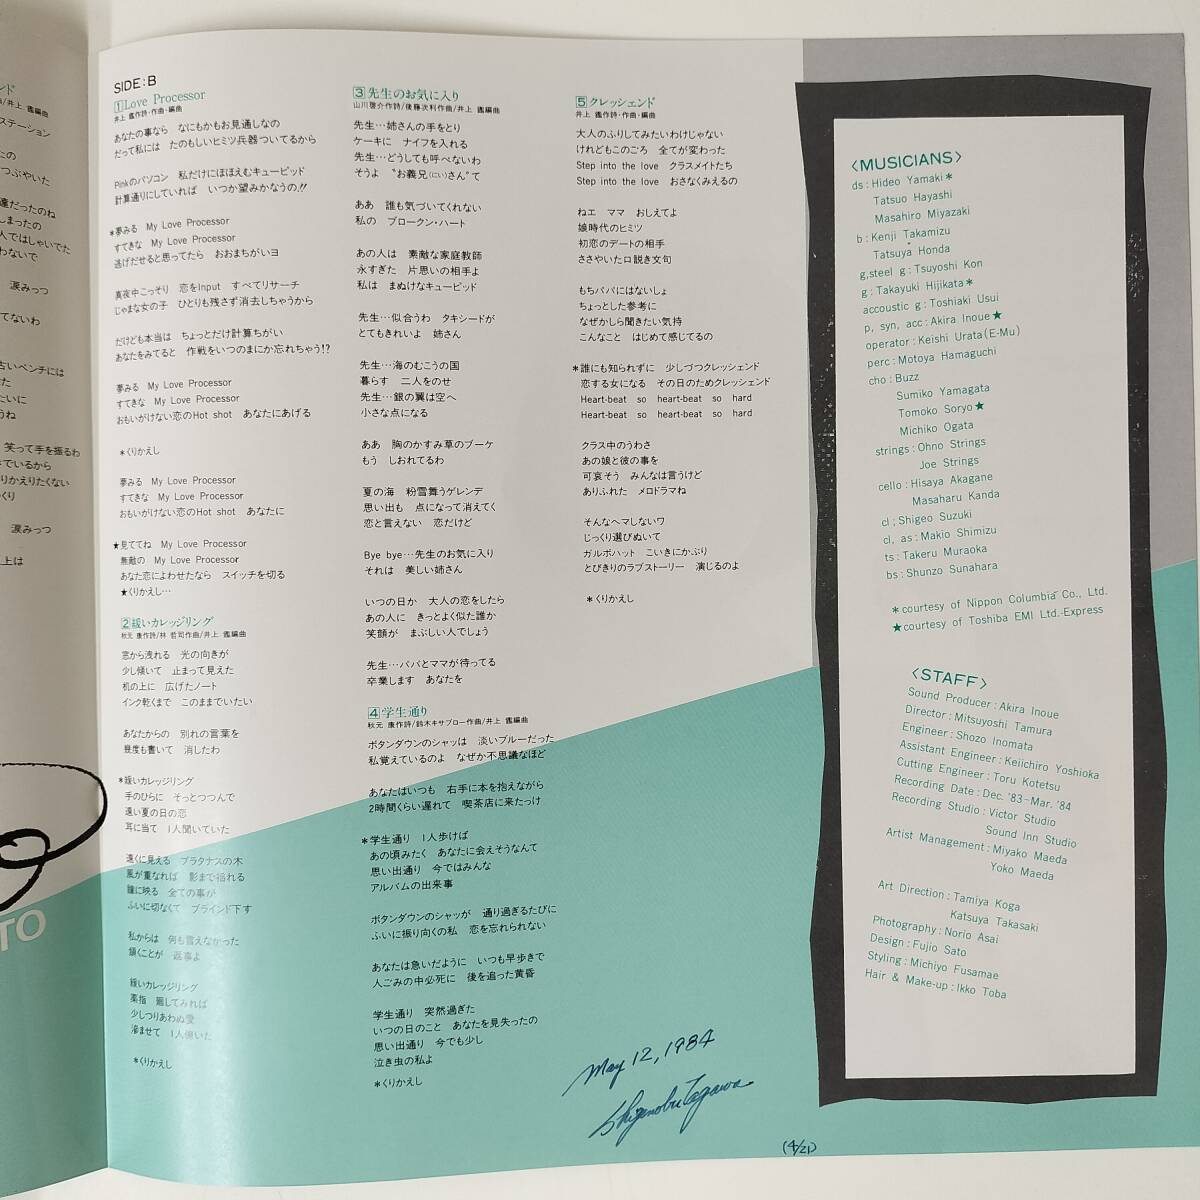 SIDE:B
1 Love Processor
井上 鑑作詩・作曲・編曲
あなたの事なら なにもかもお見通しなの
だって私には たのもしいヒミツ兵器ついてるから
Pinkのパソコン 私だけにほほえむキューピッド
計算通りにしていれば いつか望みかなうの!!
*夢みる My Love Processor
すてきな My Love Processor
逃げだせると思ってたら おおまちがいヨ
真夜中こっそり 恋をInput すべてリサーチ
じゃまな女の子 ひとりも残さず消去しちゃうから
だけども本当は ちょっとだけ計算ちがい
あなたをみてると 作戦をいつのまにか忘れちゃう!?
夢みる My Love Processor
すてきな My Love Processor
おもいがけない恋のHot shot あなたにあげる
*くりかえし
夢みる My Love Processor
すてきな My Love Processor
おもいがけない恋のHot shot あなたに
★見ててね My Love Processor
無敵の My Love Processor
あなた恋によわせたなら スイッチを切る
★くりかえし…
2 緩いカレッジリング
秋元 康作詩/林 哲司作曲/井上 鑑編曲
窓から洩れる 光の向きが
少し傾いて 止まって見えた
机の上に 広げたノート
インク乾くまで このままでいたい
あなたからの 別れの言葉を
幾度も書いて 消したわ
*緩いカレッジリング
手のひらに そっとつつんで
遠い夏の日の恋
耳に当て 1人聞いていた
遠くに見える プラタナスの木
風が重なれば 影まで揺れる
瞳に映る 全ての事が
ふいに切なくて ブラインド下す
私からは 何も言えなかった
頷くことが 返事よ
緩いカレッジリング
薬指 廻してみれば
少しつりあわぬ愛
滲ませて 1人傾いた
*くりかえし
3 先生のお気に入り
山川啓介作詩/後藤次利作曲/井上 鑑編曲
先生…姉さんの手をとり
ケーキに ナイフを入れる
先生…どうしても呼べないわ
そうよ “お義兄(にい)さん”て
ああ 誰も気づいてくれない
私の ブロークン・ハート
あの人は 素敵な家庭教師
永すぎた 片思いの相手よ
私は まぬけなキューピッド
先生…似合うわ タキシードが
とてもきれいよ 姉さん
先生…海のむこうの国
暮らす 二人をのせ
先生…銀の翼は空へ
小さな点になる
ああ 胸のかすみ草のブーケ
もう しおれてるわ
夏の海 粉雪舞うゲレンデ
思い出も 点になって消えてく
恋と言えない 恋だけど
Bye bye…先生のお気に入り
それは 美しい姉さん
いつの日か 大人の恋をしたら
あの人に きっとよく似た誰か
笑顔が まぶしい人でしょう
先生…パパとママが待ってる
卒業します あなたを
4 学生通り
秋元 康作詩/鈴木キサブロー作曲/井上 鑑編曲
ボタンダウンのシャッは 淡いブルーだった
私覚えているのよ なぜか不思議なほど
あなたはいつも 右手に本を抱えながら
2時間くらい遅れて 喫茶店に来たっけ
*学生通り 1人歩けば
あの頃みたく あなたに会えそうなんて
思い出通り 今ではみんな
アルバムの出来事
ボタンダウンのシャッが 通り過ぎるたびに
ふいに振り向くの私 恋を忘れられない
あなたは急いだように いつも早歩きで
人ごみの中必死に 後を追った黄昏
学生通り 突然過ぎた
いつの日のこと あなたを見失ったの
思い出通り 今でも少し
泣き虫の私よ
*くりかえし
5 クレッシェンド
井上 鑑作詩・作曲・編曲
大人のふりしてみたいわけじゃない
けれどもこのごろ 全てが変わった
Step into the love クラスメイトたち
Step into the love おさなくみえるの
ねエ ママ おしえてよ
娘時代のヒミツ
初恋のデートの相手
ささやいた口説き文句
もちパパにはないしょ
ちょっとした参考に
なぜかしら聞きたい気持
こんなこと はじめて感じてるの
*誰にも知られずに 少しづつクレッシェンド
恋する女になる その日のためクレッシェンド
Heart-beat so heart-beat so hard
Heart-beat so heart-beat so hard
クラス中のうわさ
あの娘と彼の事を
可哀そう みんなは言うけど
ありふれた メロドラマね
そんなヘマしないワ
じっくり選びぬいて
ガルボハット こいきにかぶり
とびきりのラブストーリー 演じるのよ
*くりかえし
〈MUSICIANS〉
ds : Hideo Yamaki*
Tatsuo Hayashi
Masahiro Miyazaki
b : Kenji Takamizu
Tatsuya Honda
g,steel g : Tsuyoshi Kon
g : Takayuki Hijikata*
accoustic g : Toshiaki Usui
p, syn, acc : Akira Inoue★
operator : Keishi Urata (E-Mu)
perc : Motoya Hamaguchi
cho : Buzz
Sumiko Yamagata
Tomoko Soryo★
Michiko Ogata
strings : Ohno Strings
Joe Strings
cello : Hisaya Akagane
Masaharu Kanda
cl ; Shigeo Suzuki
cl, as : Makio Shimizu
ts : Takeru Muraoka
bs : Shunzo Sunahara
*courtesy of Nippon Columbia Co., Ltd.
★courtesy of Toshiba EMI Ltd.-Express
〈STAFF〉
Sound Producer : Akira Inoue
Director : Mitsuyoshi Tamura
Engineer : Shozo Inomata
Assistant Engineer : Keiichiro Yoshioka
Cutting Engineer : Toru Kotetsu
Recording Date : Dec. '83~Mar. '84
Recording Studio : Victor Studio
Sound Inn Studio
Artist Management : Miyako Maeda
Yoko Maeda
Art Direction : Tamiya Koga
Katsuya Takasaki
Photography : Norio Asai
Design : Fujio Sato
Styling : Michiyo Fusamae
Hair & Make-up : Ikko Toba
May 12, 1984
Shigenobu Tagawa
(4/21)
ンド
井上 鑑編曲
ステーション
たの
つぶやいた
達だったのね
しまったの
人ではしゃいでた
わないで
涙みっつ
てないわ
古いベンチには
た
たいに
うね
笑って手を振るわ
でいるから
りかえりたくない
くり
涙みっつ
上は
TO